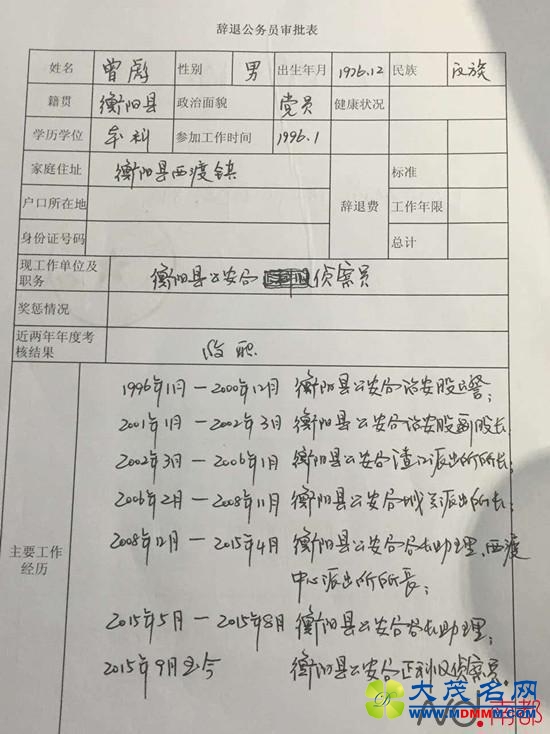 辞退公务员审批表
姓名 曾彪 性别 男 出生年月 1976.12 民族 汉族
籍贯 衡阳县 政治面貌 党员 健康状况
学历学位 本科 参加工作时间 1996.1
家庭住址 衡阳县西渡镇 辞退费 标准
户口所在地 工作年限
身份证号码 总计
现工作单位及
职务 衡阳县公安局 侦察员
奖惩情况
近两年年度考
核结果 称职
主要工作
经历
1996年1月—2000年12月 衡阳县公安局治安股民警;
2001年1月—2002年3月 衡阳县公安局治安股副股长
2002年3月—2006年1月 衡阳县公安局渣江派出所所长;
2006年2月—2008年11月 衡阳县公安局城关派出所长;
2008年12月—2015年4月 衡阳县公安局局长助理、西渡
中心派出所所长;
2015年5月—2015年8月 衡阳县公安局局长助理;
2015年9月至今 衡阳县公安局正科级侦察员.
大茂名网
WWW.MDMMM.COM
南都